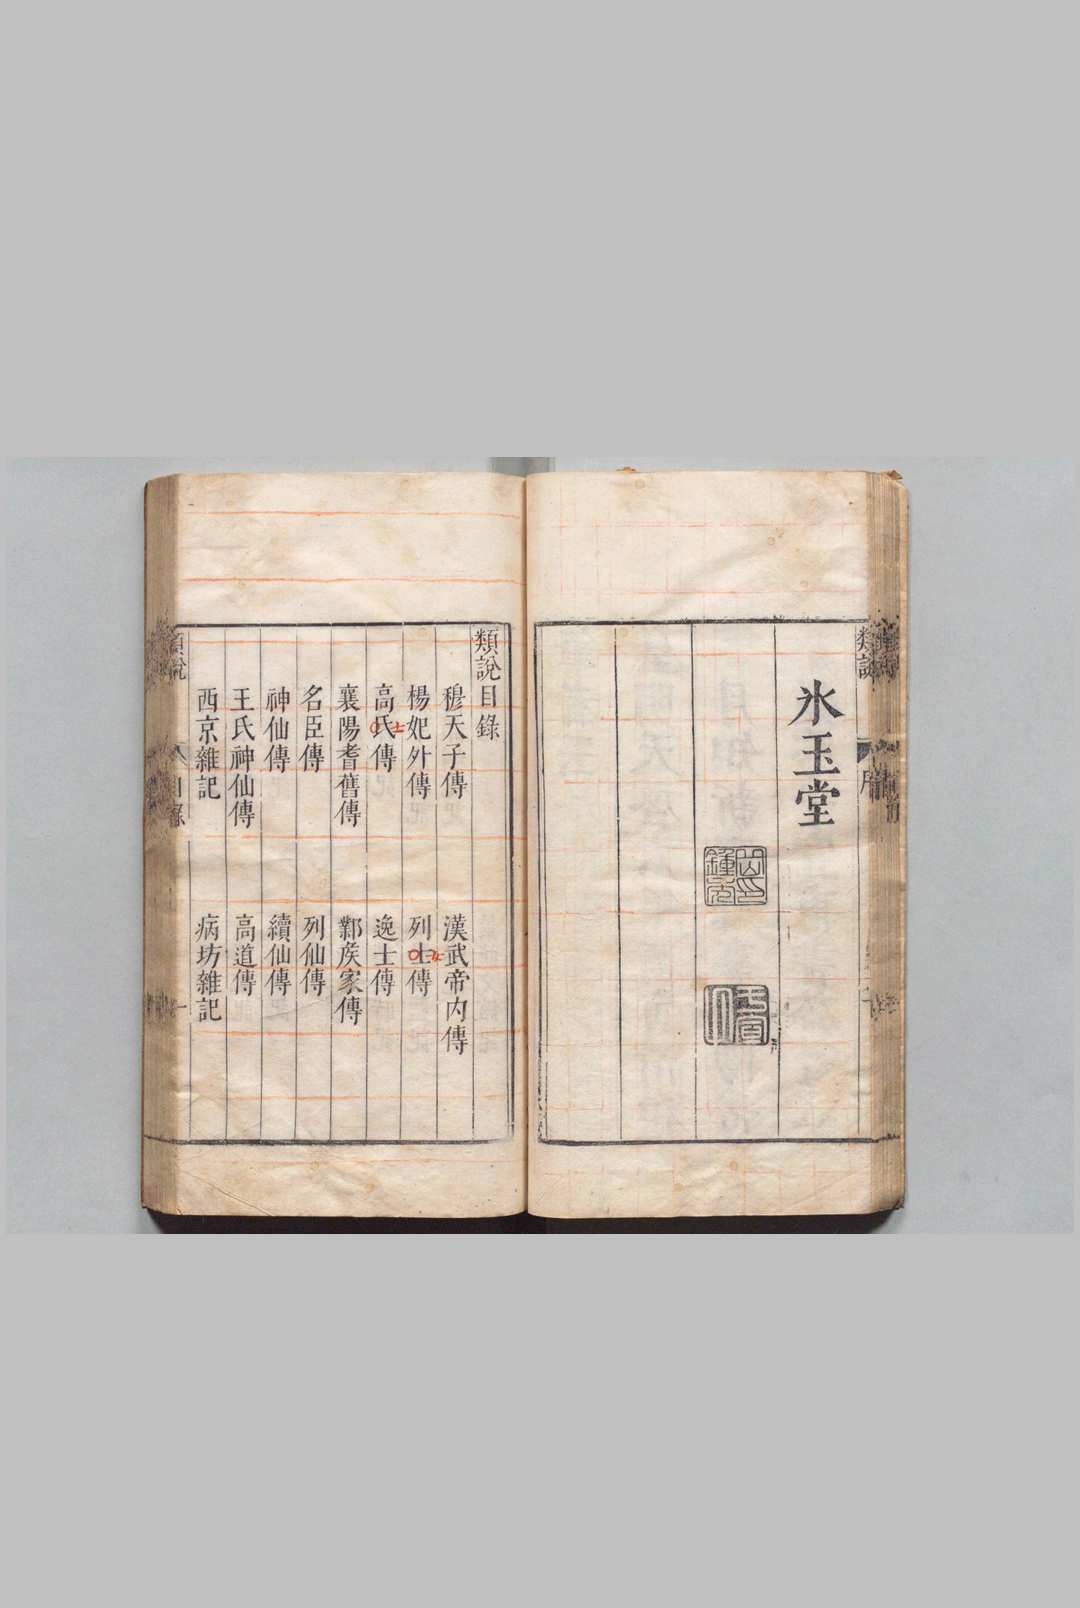 氷玉堂
類說
序
類說目錄
穆天子傳
漢武帝内傳
楊妃外傳
列士傳
高氏傳
士
逸士傳
襄陽耆舊傳
鄴侯家傳
名臣傳
列仙傳
神仙傳
續仙傳
王氏神仙傳
高道傳
西京雜記
病坊雜記
類說
目錄
一